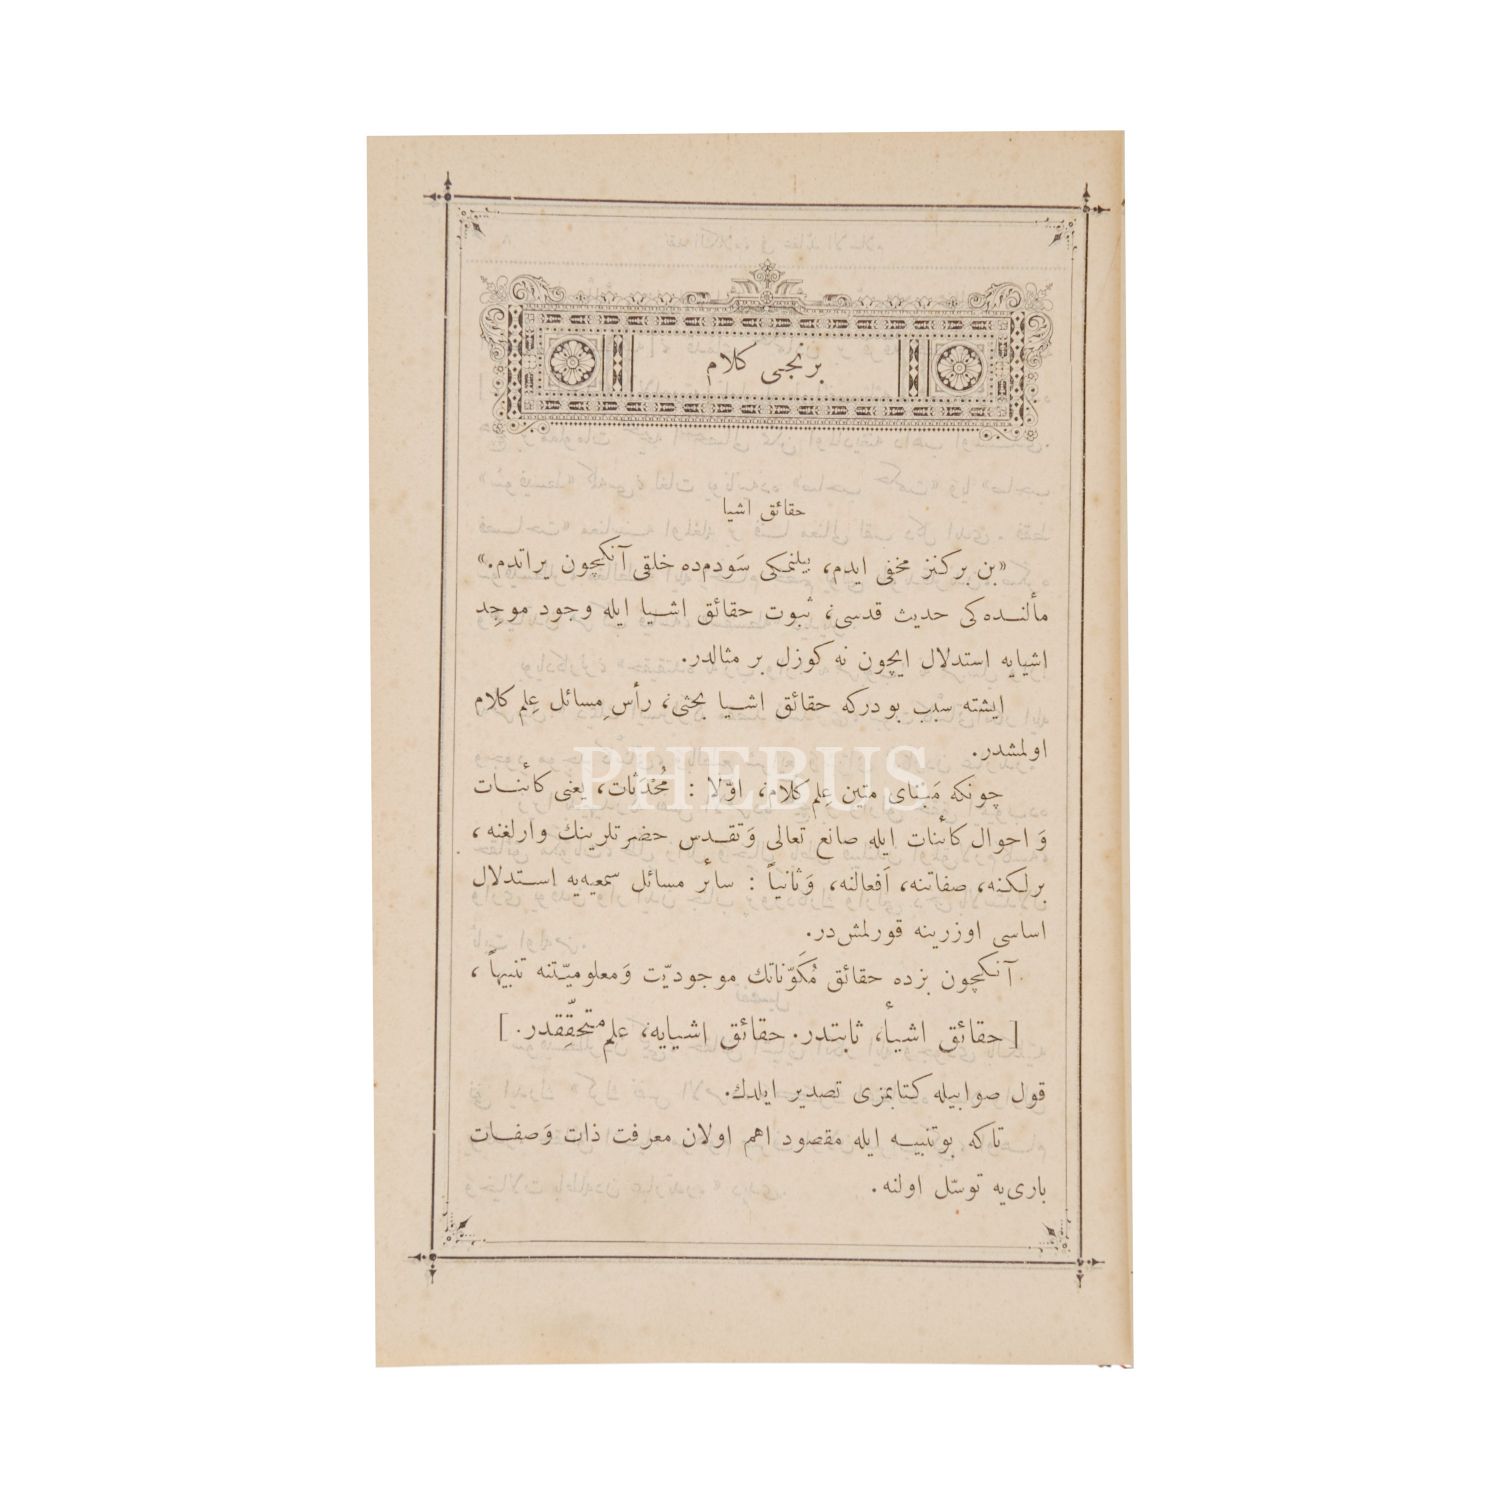 برنجى كلام
حقائق اشيا
«بن بركنز مخفى ايدم، بيلنمكى سَودم‌ده خلقى آنكيچون يراتدم.»
مألنده‌كى حديث قدسى، ثبوت حقائق اشيا ايله وجود موجِد
اشيايه استدلال ايچون نه كوزل بر مثالدر.
ايشته سبب بودركه حقائق اشيا بحثى، رأس مِسائل عِلم كلام
اولمشدر.
چونكه مَبناى متين عِلم كلام، اوّلا : مُحْدَثات، يعنى كائنات
وَ احوال كائنات ايله صانع تعالى وَتقدس حضرتلرينك وارلغنه،
برلكنه، صفاتنه، اَفعالنه، وَثانياً : سائر مسائل سمعيه‌يه استدلال
اساسى اوزرينه قورلمش‌در.
آنكيچون بزده حقائق مُكَوّناتك موجوديّت وَمعلوميّتنه تنبيهاً،
[ حقائق اشيأ، ثابتدر. حقائق اشيايه، علم متحقِّقدر. ]
قول صوابيله كتابمزى تصدير ايلدك.
تاكه بوتنبيه ايله مقصود اهم اولان معرفت ذات وَصفات
بارى‌يه توسّل اولنه.
PHEBUS